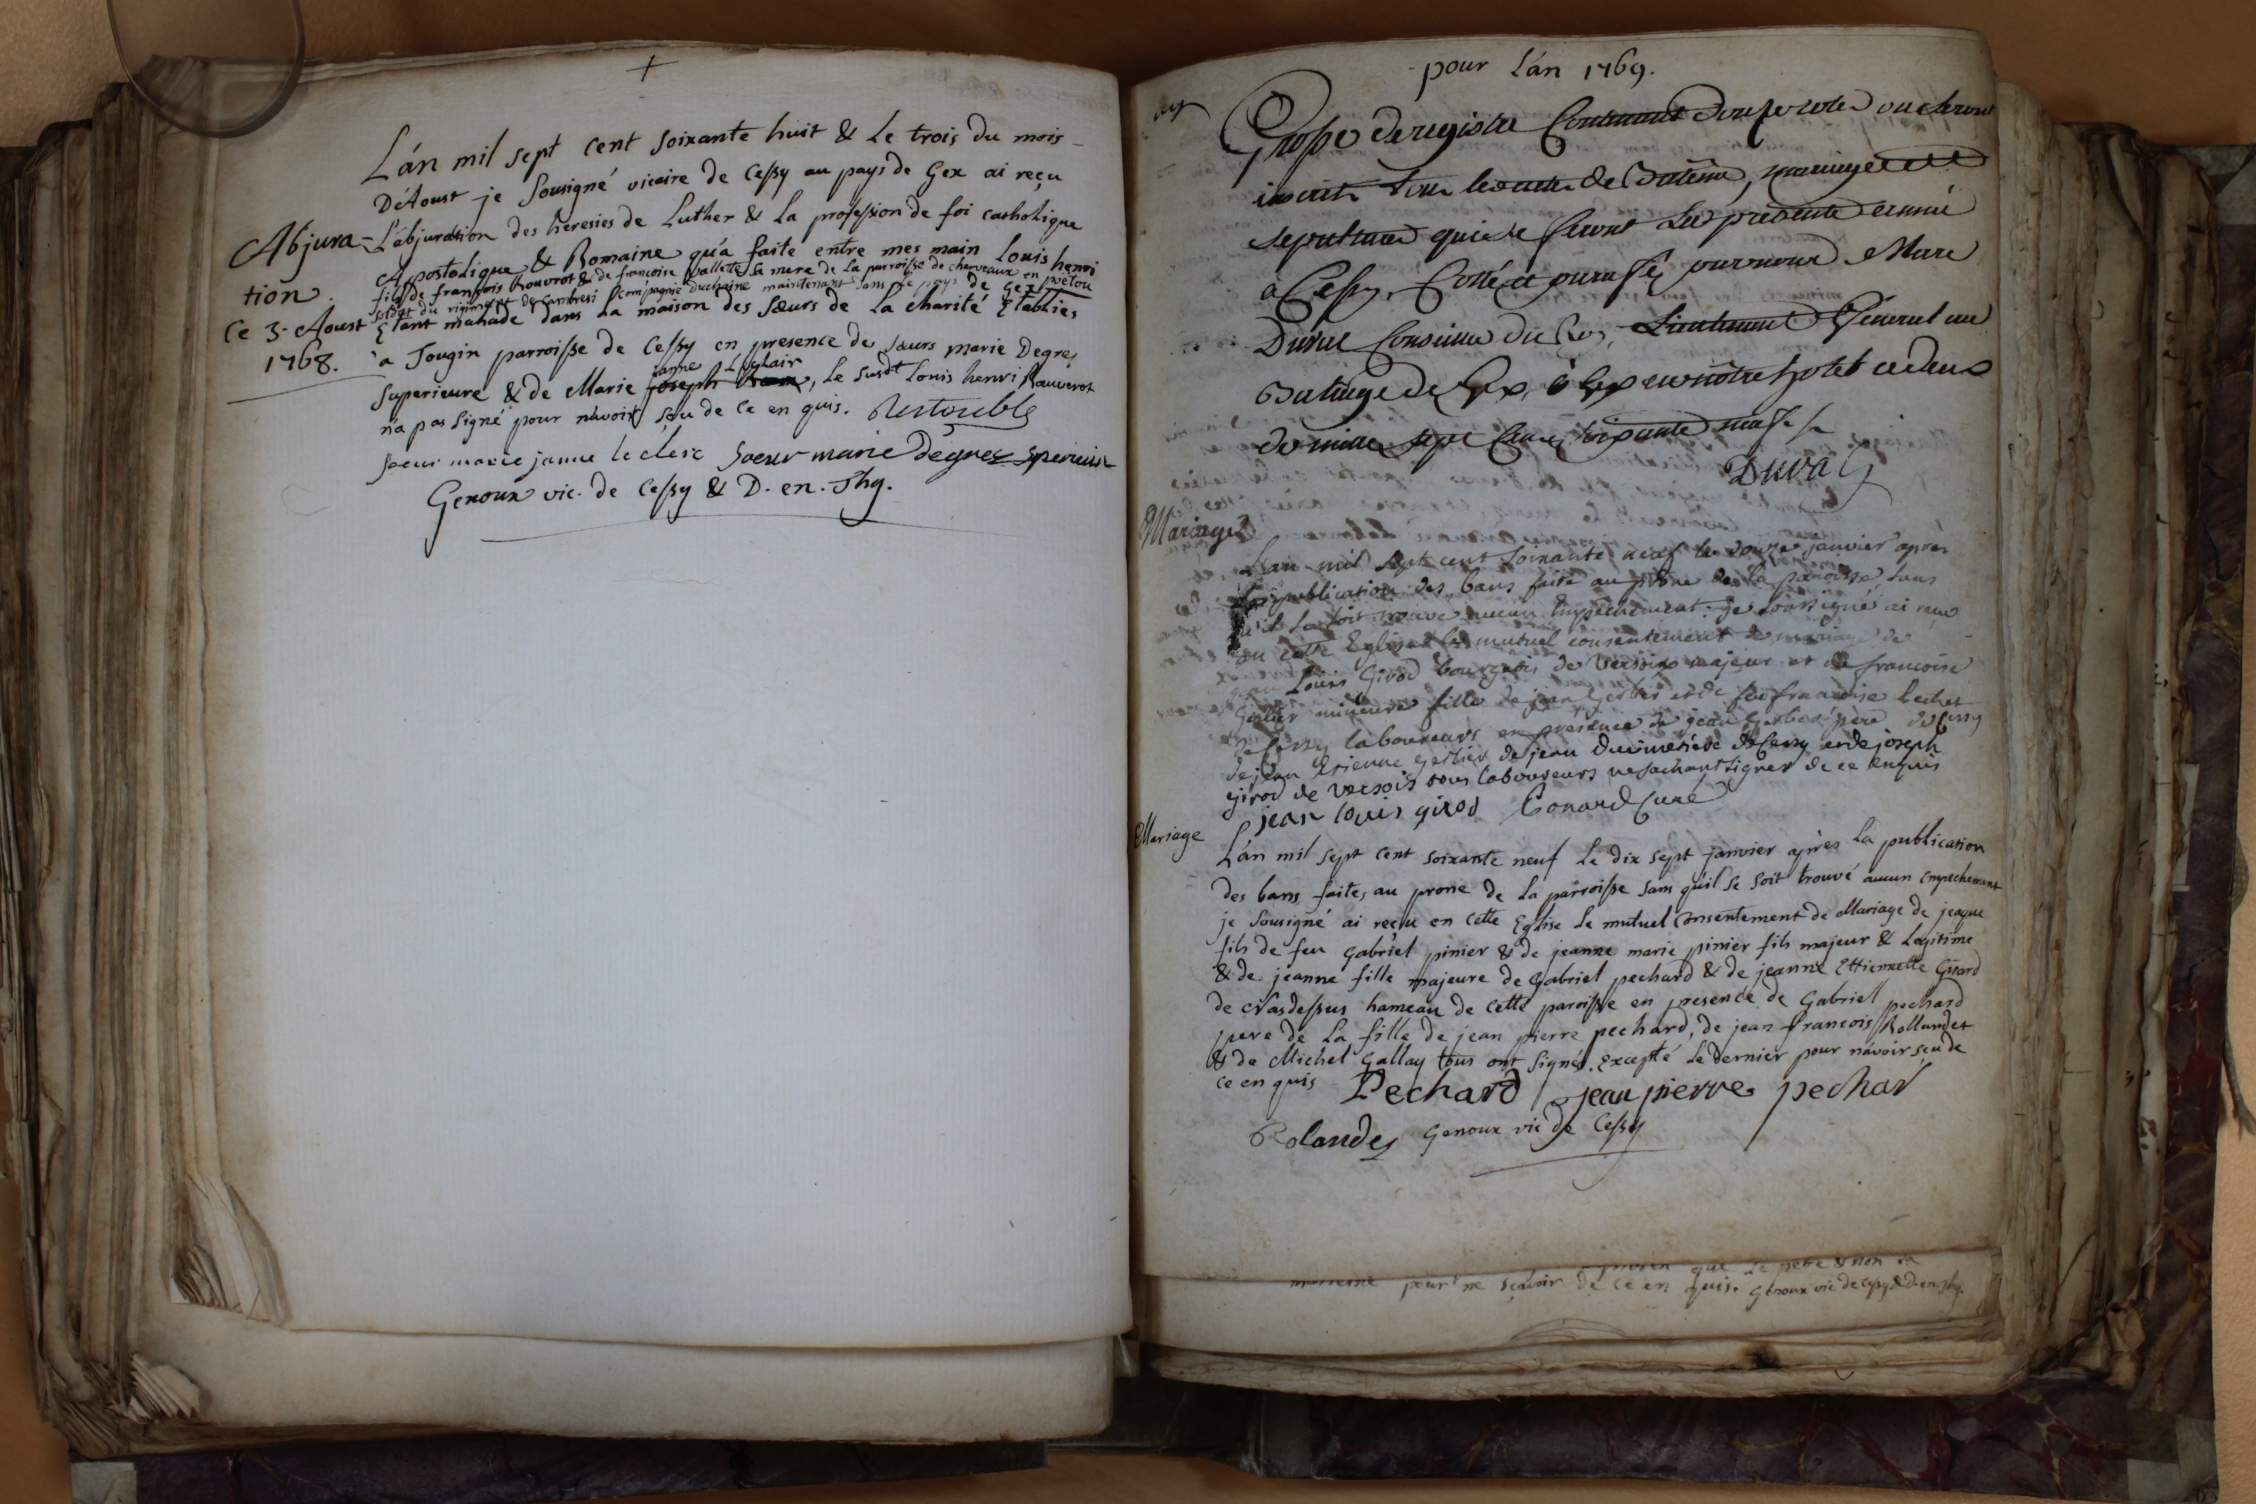 +
L'án mil sept cent soixante huit & Le trois du mois
D'Aoust je Sousigné vicaire de Cessy au pays de Gex ai reçu
Abjura- L'abjuration des heresies de Luther & La profession de foi catholique
tion.
Ce 3. Aoust
1768.
Apostolique & Romaine qu'a faite entre mes main Louis henri
fils de françois Rouvrot & de francoise vallete sa mere de La parroisse de cherveaux en poëtou
soldat du regiment de Cambresi Compagnie Duchaine maintenant dans le pays de Gex
Etant malade dans La maison des Sœurs de La charité Etablies
à Tougin parroisse de Cessy en presence de sœurs marie Degres
janne Leclair
Superieure & de Marie joseph, Le susdt Louis henri Rauverot
n'a pas signé pour n'avoir sçu de ce en quis. Restouble
soeur marie janne le clerc Soeur marie degres superieure
Genoux vic. de Cessy & D. en. Thg.
pour L'án 1769.
Grosse de registre Contenant douze roles ou seront
inscrits tous les actes de Batême, mariage et
sepultures qui se feront La presente année
a Cessy, Cotté et paraffé par nous Marc
Duval Conseiller du Roy, Lieutenant Général au
Bailliage de Gex, à Gex en nôtre hotel ce deux
de mille sept cent soixante neuf
Duval
Mariage
L'an mil sept cent soixante neuf le douze janvier apres
la publication des bans faite au prône de la paroisse sans
qu'il se soit trouvé aucun Empechement je soussigné ai reçu
en cette Eglise le mutuel consentement de mariage de
jean Louis Girod bourgeois de Versoix majeur et de francoise
Gerlier mineure fille de jean Gerlier et de feu francoise bechet
de Cessy laboureurs en présence de jean Gerlier père de Cessy
de jean Etienne Gerlier de jean de Cessy et de joseph
girod de Versoix tous laboureurs ne sachant signer de ce enquis
jean louis girod Conard Curé
Mariage
L'án mil sept cent soixante neuf Le dix sept janvier après La publication
des bans faites au prone de La parroisse sans qu'il se soit trouvé aucun Empechement
je Sousigné ai reçu en cette Eglise Le mutuel Consentement de Mariage de jeaque
fils de feu gabriel pinier & de jeanne marie pinier fils majeur & Legitime
& de jeanne fille majeure de gabriel pechard & de jeanne Ettiennette Girard
de chasdessus hameau de cette paroisse en presence de Gabriel pechard
pere de La fille de jean pierre pechard, de jean francois Rollandet
& de Michel Gallay tous ont signés. Excepté Le dernier pour n'avoir sçu de
ce en quis Pechard jean pierre pechar
Rolandes Genoux vic de Cessy
que Le pere & non
pour ne sçavoir de ce en quis. Genoux vic de Cessy & D. en thg.